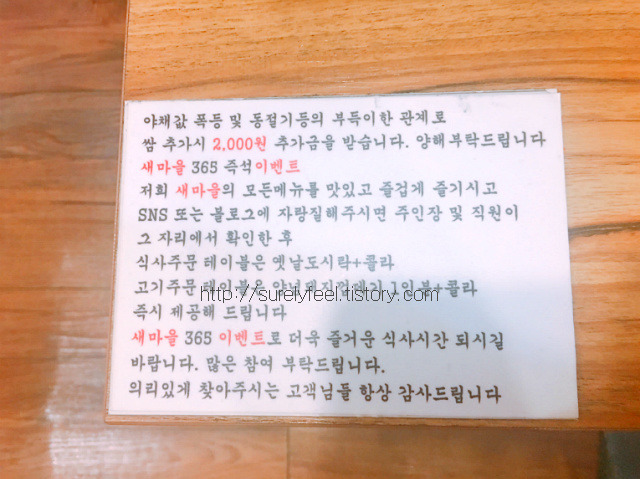 야채값 폭등 및 동절기등의 부득이한 관계로
쌈 추가시 2,000원 추가금을 받습니다. 양해부탁드립니다
새마을 365 즉석이벤트
저희 새마을의 모든메뉴를 맛있고 즐겁게 즐기시고
SNS 또는 블로그에 자랑질해주시면 주인장 및 직원이
그 자리에서 확인한 후
식사주문 테이블은 옛날도시락+콜라
고기주문 테이블은 1인분+콜라
http://surelyfeel.tistory.com
즉시 제공해 드립니다
새마을 365 이벤트로 더욱 즐거운 식사시간 되시길
바랍니다. 많은 참여 부탁드립니다.
의리있게 찾아주시는 고객님들 항상 감사드립니다